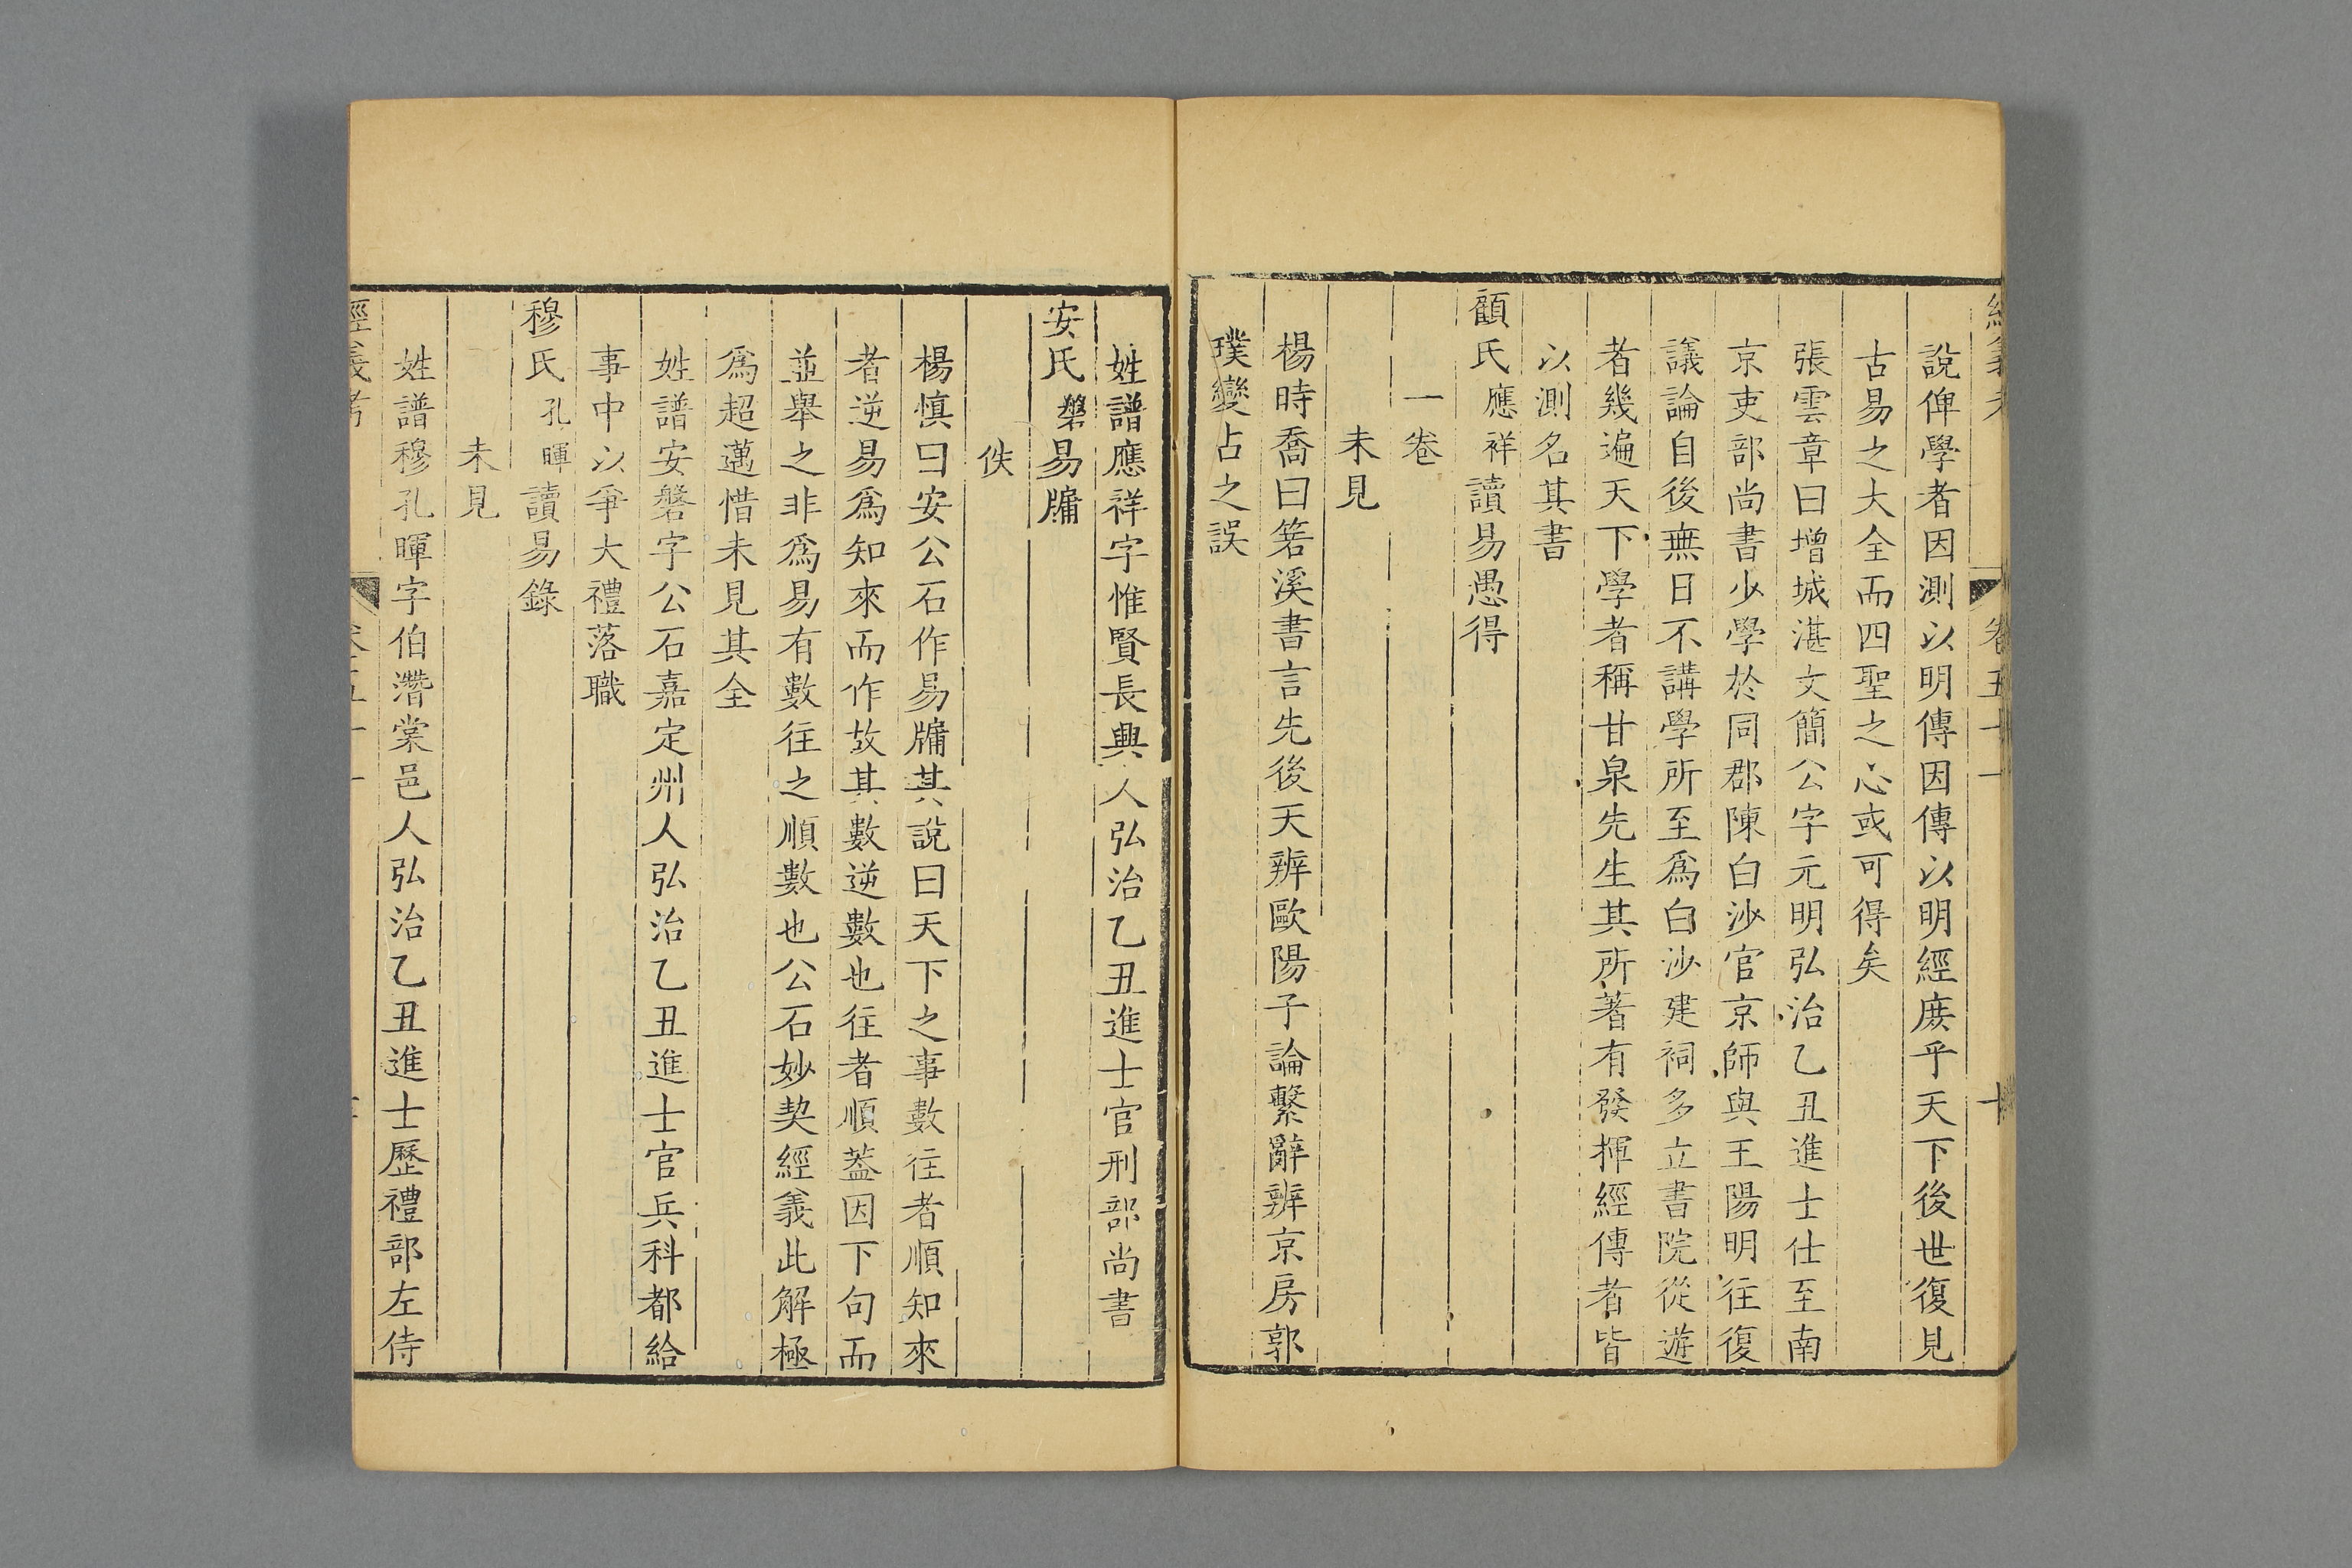 說俾學者因測以明傳因傳以明經庶乎天下後世復見
古易之大全而四聖之心或可得矣
張雲章曰增城湛文簡公字元明弘治乙丑進士仕至南
京吏部尚書少學於同郡陳白沙官京師與王陽明往復
議論自後無日不講學所至爲白沙建祠多立書院從遊
者幾遍天下學者稱甘泉先生其所著有發揮經傳者皆
以測名其書
顧氏應祥讀易愚得
一卷
未見
楊時喬曰箬溪書言先後天辨歐陽子論繫辭辨京房郭
璞變占之誤
姓譜應祥字惟賢長興人弘治乙丑進士官刑部尚書
安氏磐易牗
佚
楊慎曰安公石作易牗其說曰天下之事數往者順知來
者逆易爲知來而作故其數逆數也往者順蓋因下句而
並舉之非爲易有數往之順數也公石妙契經義此解極
爲超邁惜未見其全
姓譜安磐字公石嘉定州人弘治乙丑進士官兵科都給
事中以爭大禮落職
穆氏孔暉讀易錄
未見
姓譜穆孔暉字伯濳棠邑人弘治乙丑進士歷禮部左侍
經義考